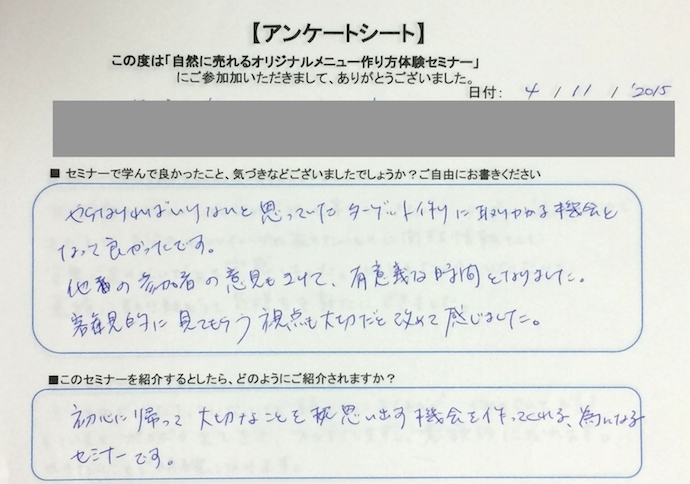 【アンケートシート】
この度は「自然に売れるオリジナルメニュー作り方体験セミナー」
にご参加加いただきまして、ありがとうございました。
日付: 4 / 11 / '2015
■ セミナーで学んで良かったこと、気づきなどございましたでしょうか?ご自由にお書きください
やらなければいけないと思っていたターゲット作りに取りかかる機会と
なって良かったです。
他の参加者の意見もきけて、有意義な時間となりました。
客観的に見てもらう視点も大切だと改めて感じました。
■このセミナーを紹介するとしたら、どのようにご紹介されますか?
初心に帰って大切なことを思い出す機会を作ってくれる、為になる
セミナーです。